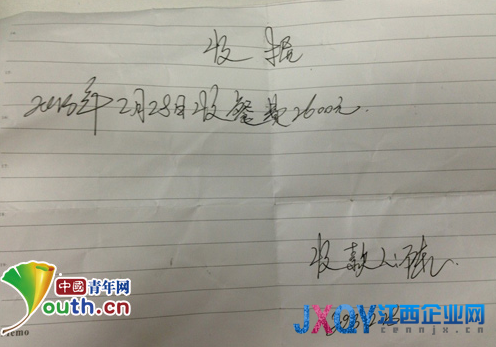 收据
2015年2月28日收餐费2600元.
收款人:
中國青年网
Youth.cn
JXQY江西企业网
cennjx.cn
emo